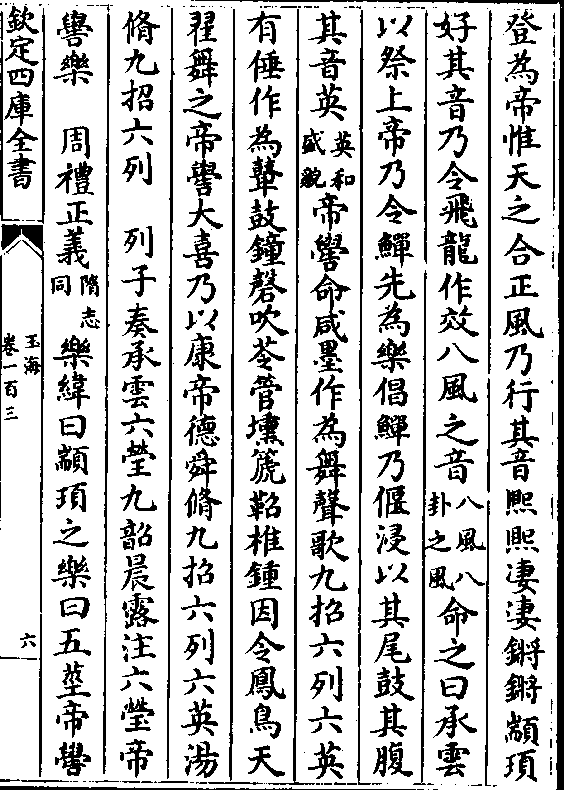 登為帝惟天之合正風乃行其音熈熈淒淒鏘鏘顓頊
好其音乃令飛龍作效八風之音八風八卦之風命之曰承雲
以祭上帝乃令鱓先為樂倡鱓乃偃浸以其尾鼓其腹
其音英英和盛貌帝嚳命咸墨作為舞聲歌九招六列六英
有倕作為鼙鼓鐘磬吹苓管壎箎鞀椎鍾因令鳳鳥天
翟舞之帝嚳大喜乃以康帝德舜脩九招六列六英湯
脩九招六列　列子奏承雲六瑩九韶晨露注六瑩帝
嚳樂　周禮正義隋志同樂緯曰顓頊之樂曰五莖帝嚳
欽定四庫全書
玉海
卷一百三
六